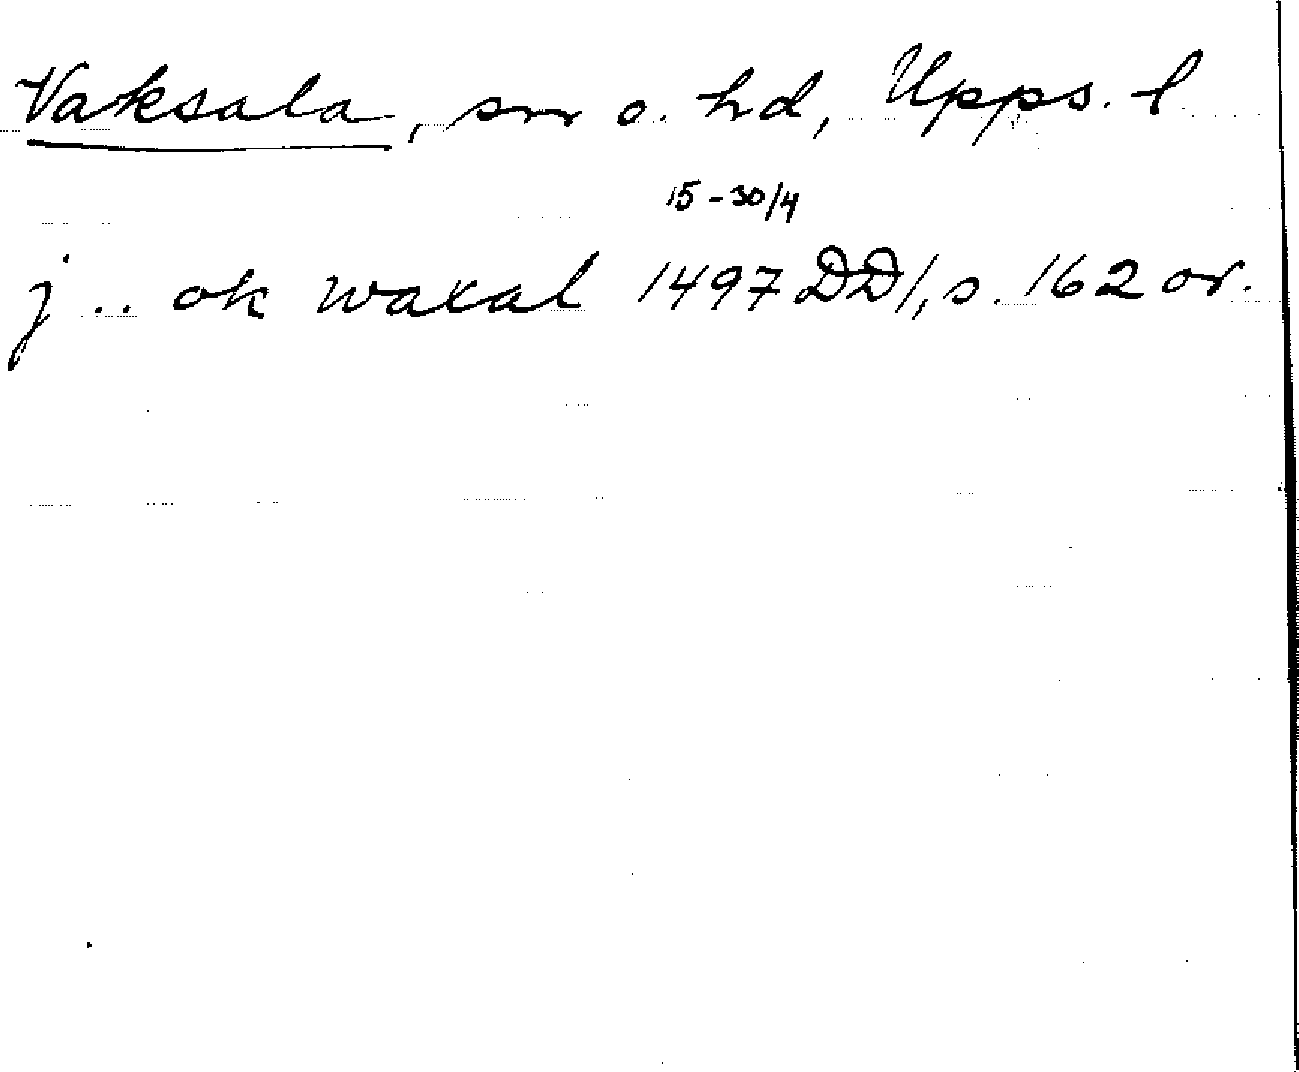 Vaksala, sn o. hd, Upps. l
15-30/4
j .. ok waxal 1497 DD1, s. 162 or.